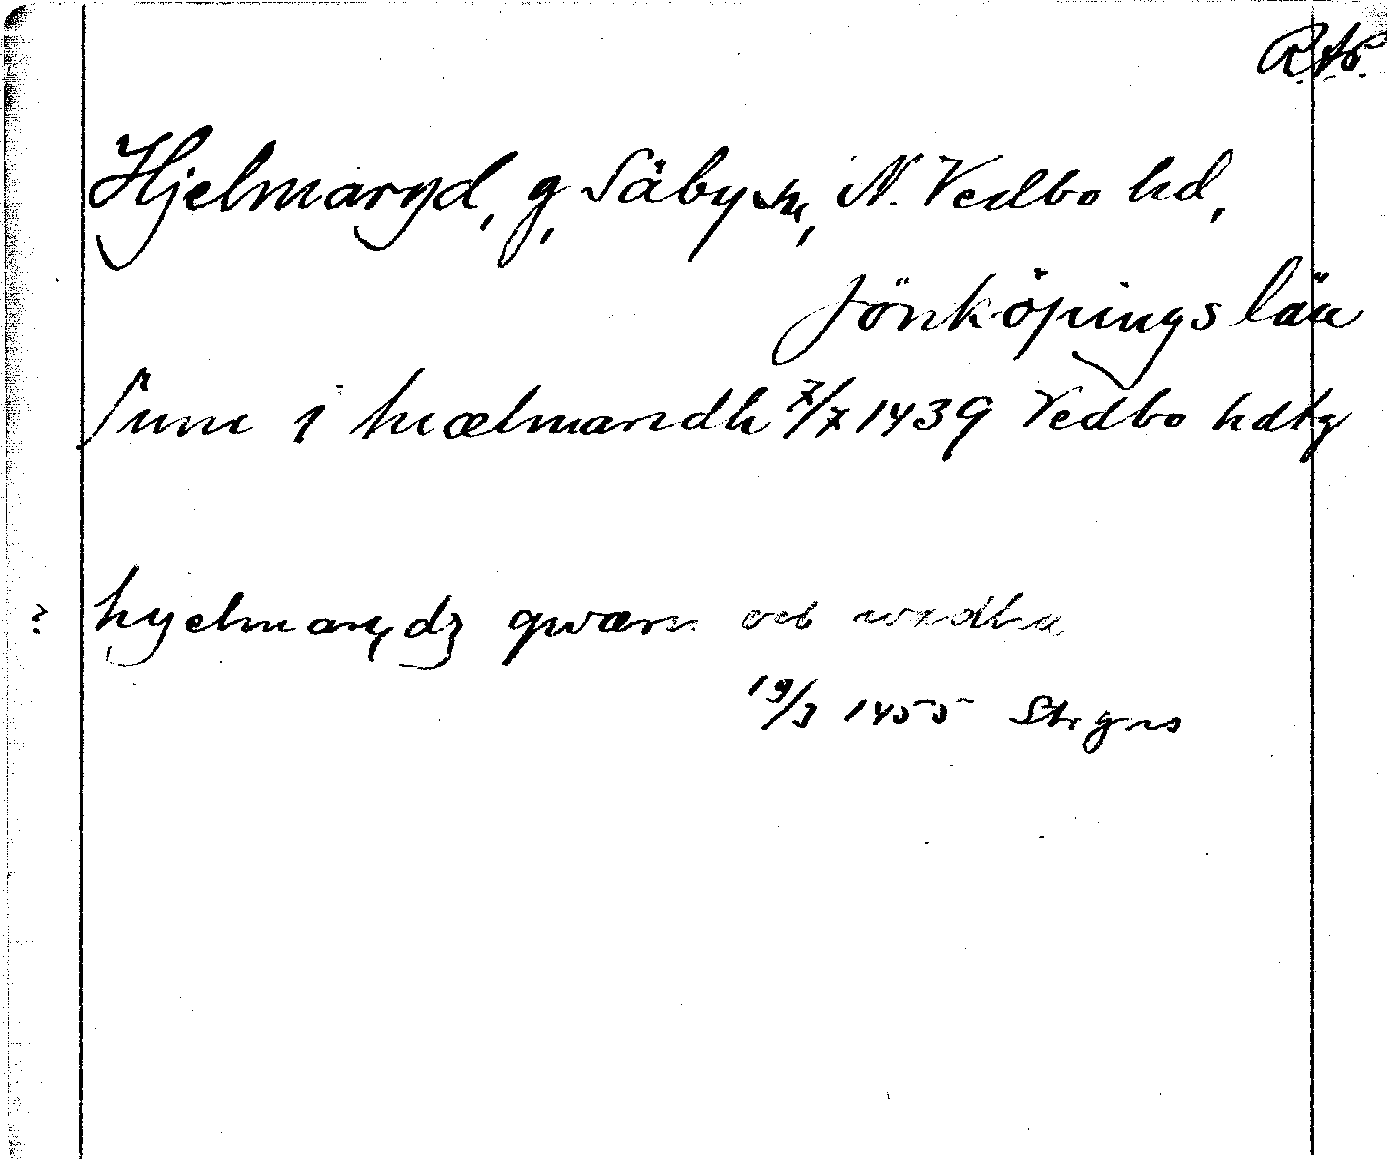 R.Ap.
Hjelmaryd, g, Säby sn, N. Vedbo hd,
Jönköpings län
Sune i hiælmaridh 7/7 1439 Vedbo hdtg
? hyelmarydz qwærn oc wadha
19/3 1455 Strgns